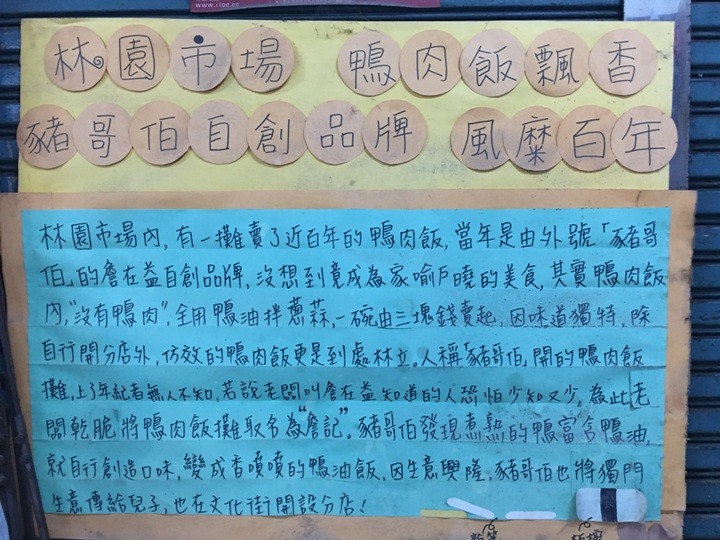 www.1loc.cc
林園市場 鴨肉飯飄香
豬哥伯自創品牌 風糜百年
林園市場內,有一攤賣了近百年的鴨肉飯,當年是由外號「豬哥
伯」的詹在益自創品牌,沒想到竟成為家喻戶曉的美食,其實鴨肉飯
內,"沒有鴨肉",全用鴨油拌蔥蒜,一碗由三塊錢賣起,因味道獨特,除
自行開分店外,仿效的鴨肉飯更是到處林立。人稱「豬哥伯」開的鴨肉飯
攤,上了年紀者無人不知,若說老闆叫詹在益知道的人恐怕少知又少,為此老
闆乾脆將鴨肉飯攤取名為"詹記"。豬哥伯發現煮熟的鴨富含鴨油,
就自行創造口味,變成香噴噴的鴨油飯,因生意興隆,豬哥伯也將獨門
生意傳給兒子,也在文化街開設分店!